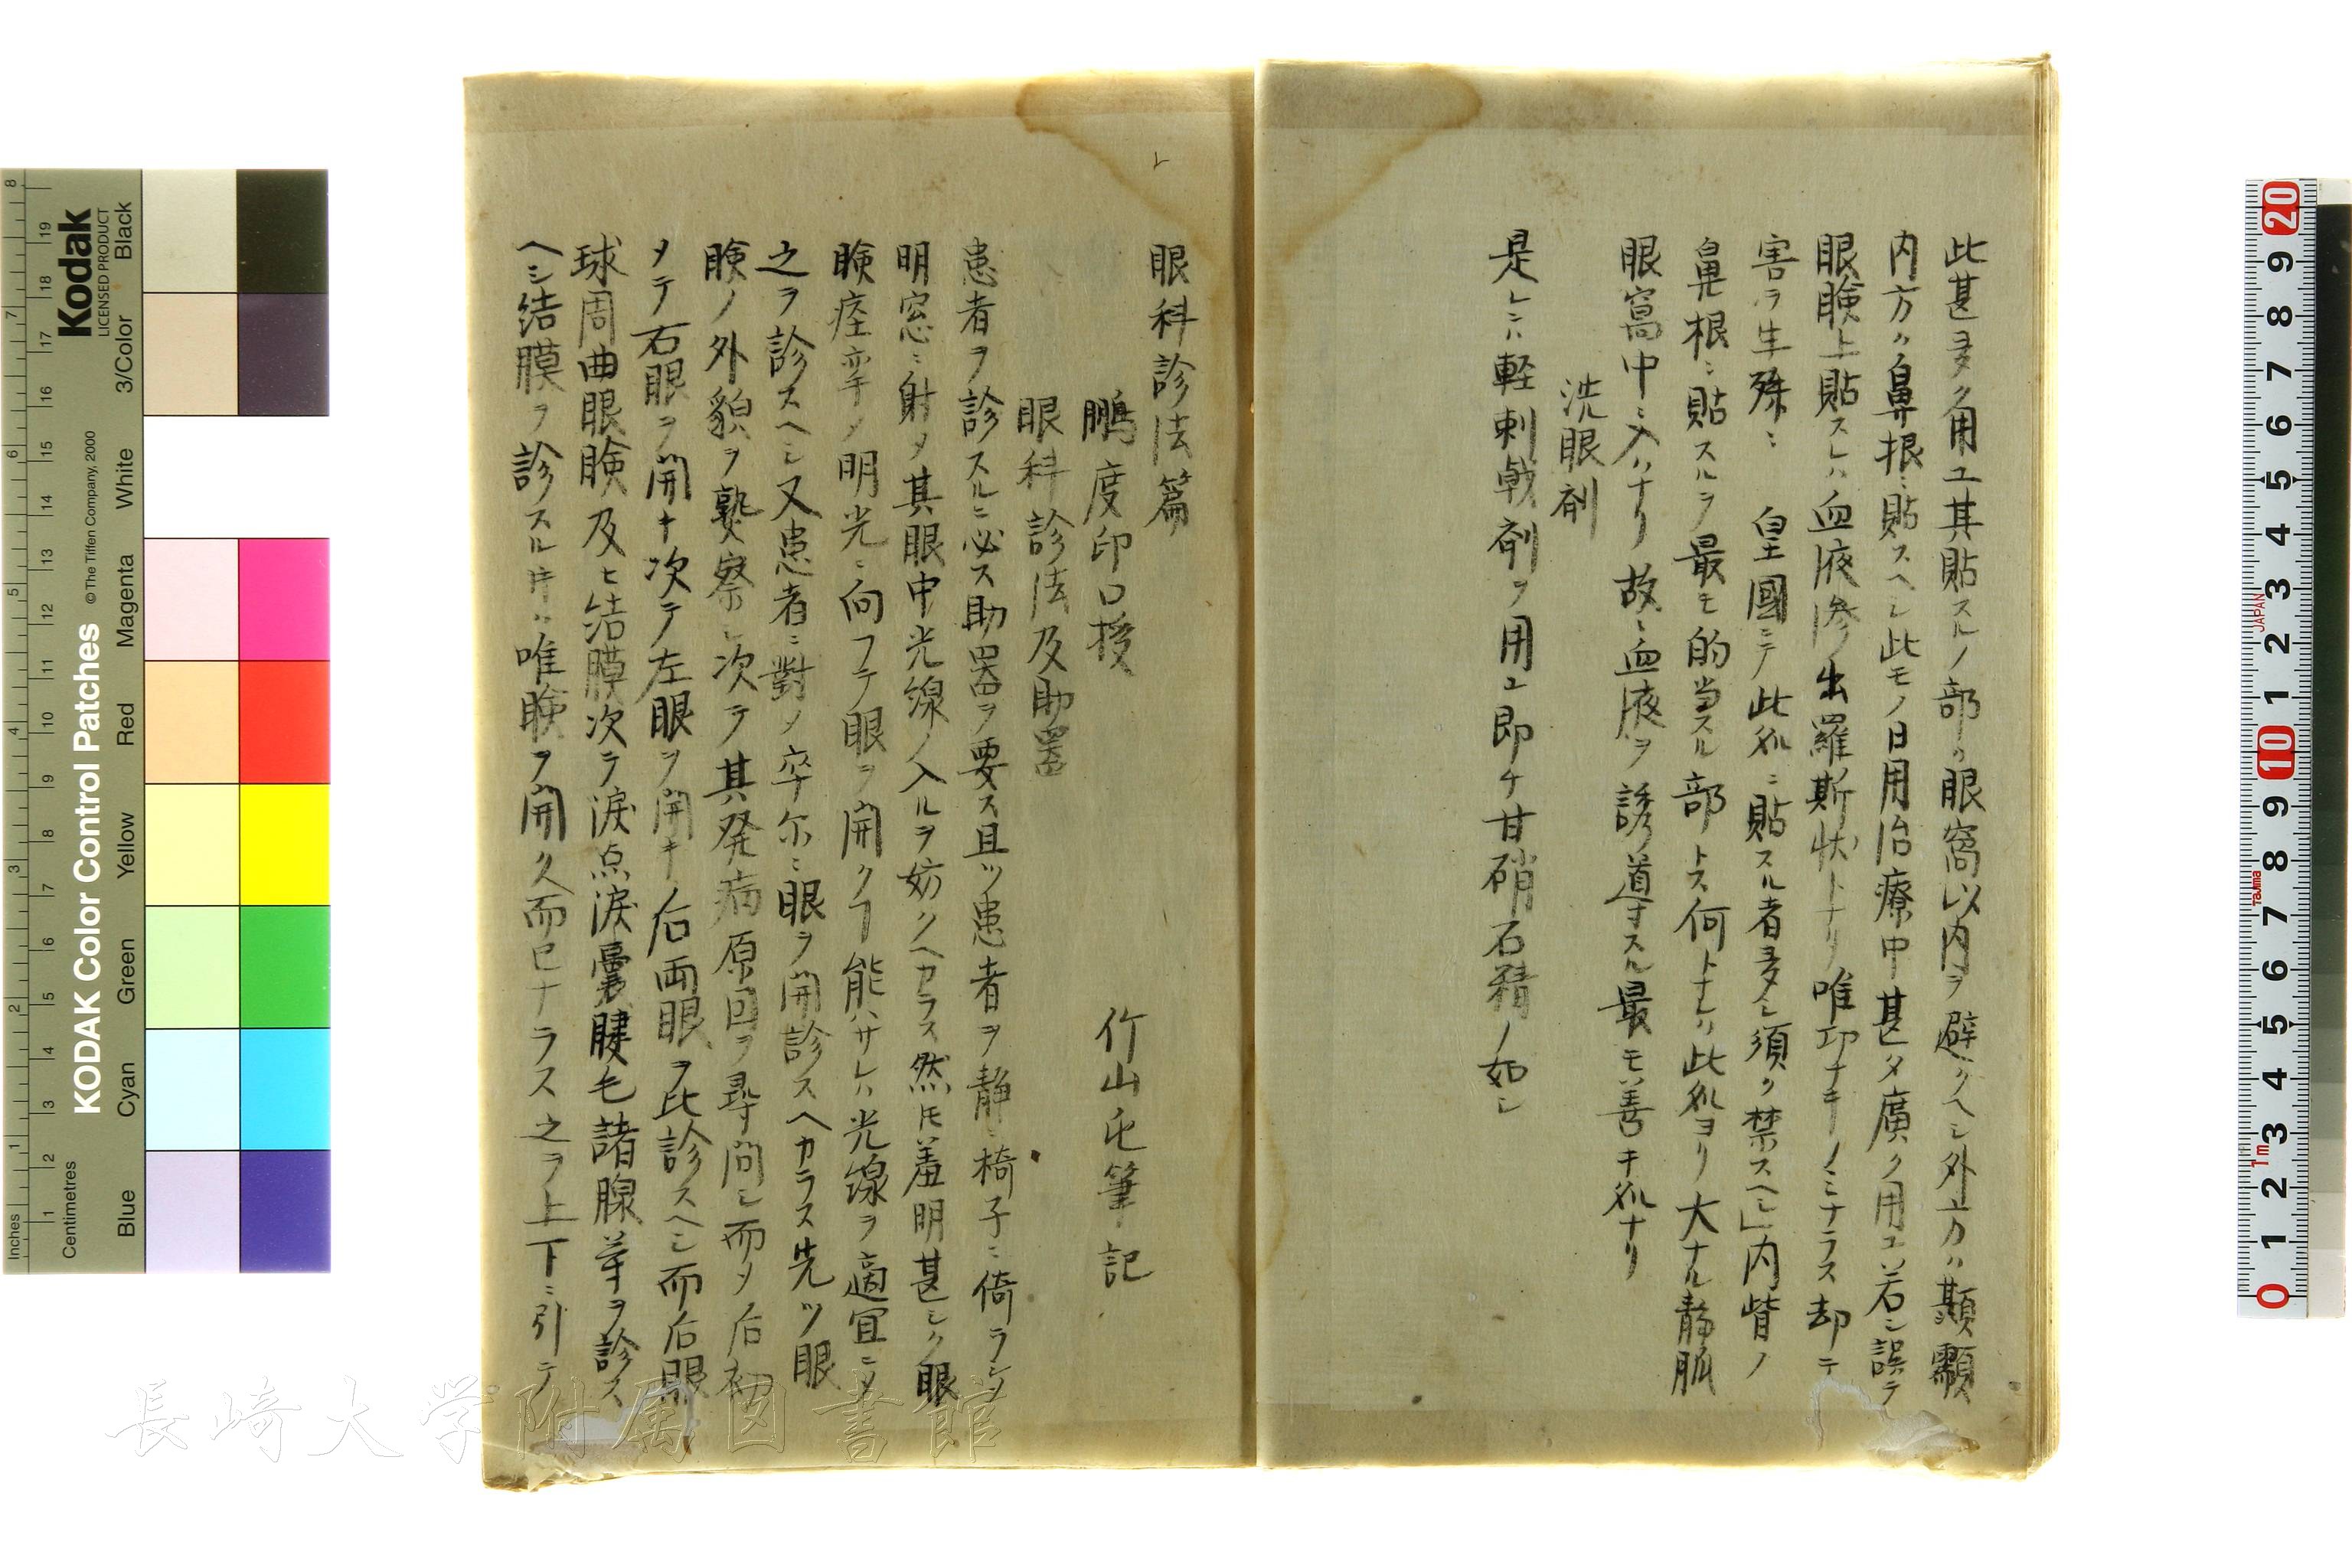 此甚多ク用ユ其貼スルノ部ハ眼窩以内ヲ避クヘシ外方ハ顳顬
内方ハ鼻根ニ貼スヘシ此モノ日用治療中甚タ廣ク用ユ若シ誤テ
眼瞼上貼スレハ血液滲出羅斯状トナリ唯功ナキノミナラス却テ
害ヲ生殊ニ 皇國ニテ此処ニ貼スル者多シ須ク禁スヘシ」内眥ノ
鼻根ニ貼スルヲ最モ的当スル部トス何トナレハ此処ヨリ大ナル静脈
眼窩中ニ入ハナリ故ニ血液ヲ誘導スル最モ善キ処ナリ
洗眼剤
是レニハ軽刺戟剤ヲ用ユ即チ甘硝石精ノ如シ
眼科診法篇
鵬度印口授 竹山屯筆記
眼科診法及助器
患者ヲ診スルニ必ス助器ヲ要ス且ツ患者ヲ静ニ椅子ニ倚ラシメ
明窓ニ射メ其眼中光線ノ入ルヲ妨クヘカラス然𪜈羞明甚シク眼
瞼痙攣メ明光ニ向フテ眼ヲ開クヿ能ハサレハ光線ヲ適宜ニメ
之ヲ診スヘシ又患者ニ對メ卒尓ニ眼ヲ開診スヘカラス先ツ眼
瞼ノ外貌ヲ熟察シ次テ其発病原因ヲ尋問シ而メ后初
メテ右眼ヲ開キ次テ左眼ヲ開キ后両眼ヲ比診スヘシ而后眼
球周曲眼瞼及ヒ結膜次テ涙点涙嚢睫毛諸腺等ヲ診ス
ヘシ結膜ヲ診スル𪜈ハ唯瞼ヲ開ク而已ナラス之ヲ上下ニ引テ
長崎大学附属図書館
Kodak
LICENSED PRODUCT
KODAK Color Control Patches
© The Tiffen Company, 2000
Inches
Centimetres
Blue Cyan Green Yellow Red Magenta White 3/Color Black
1 2 3 4 5 6 7 8
1 2 3 4 5 6 7 8 9 10 11 12 13 14 15 16 17 18 19
0 1 2 3 4 5 6 7 8 9 10 1 2 3 4 5 6 7 8 9 20
1m
Tajima
JAPAN